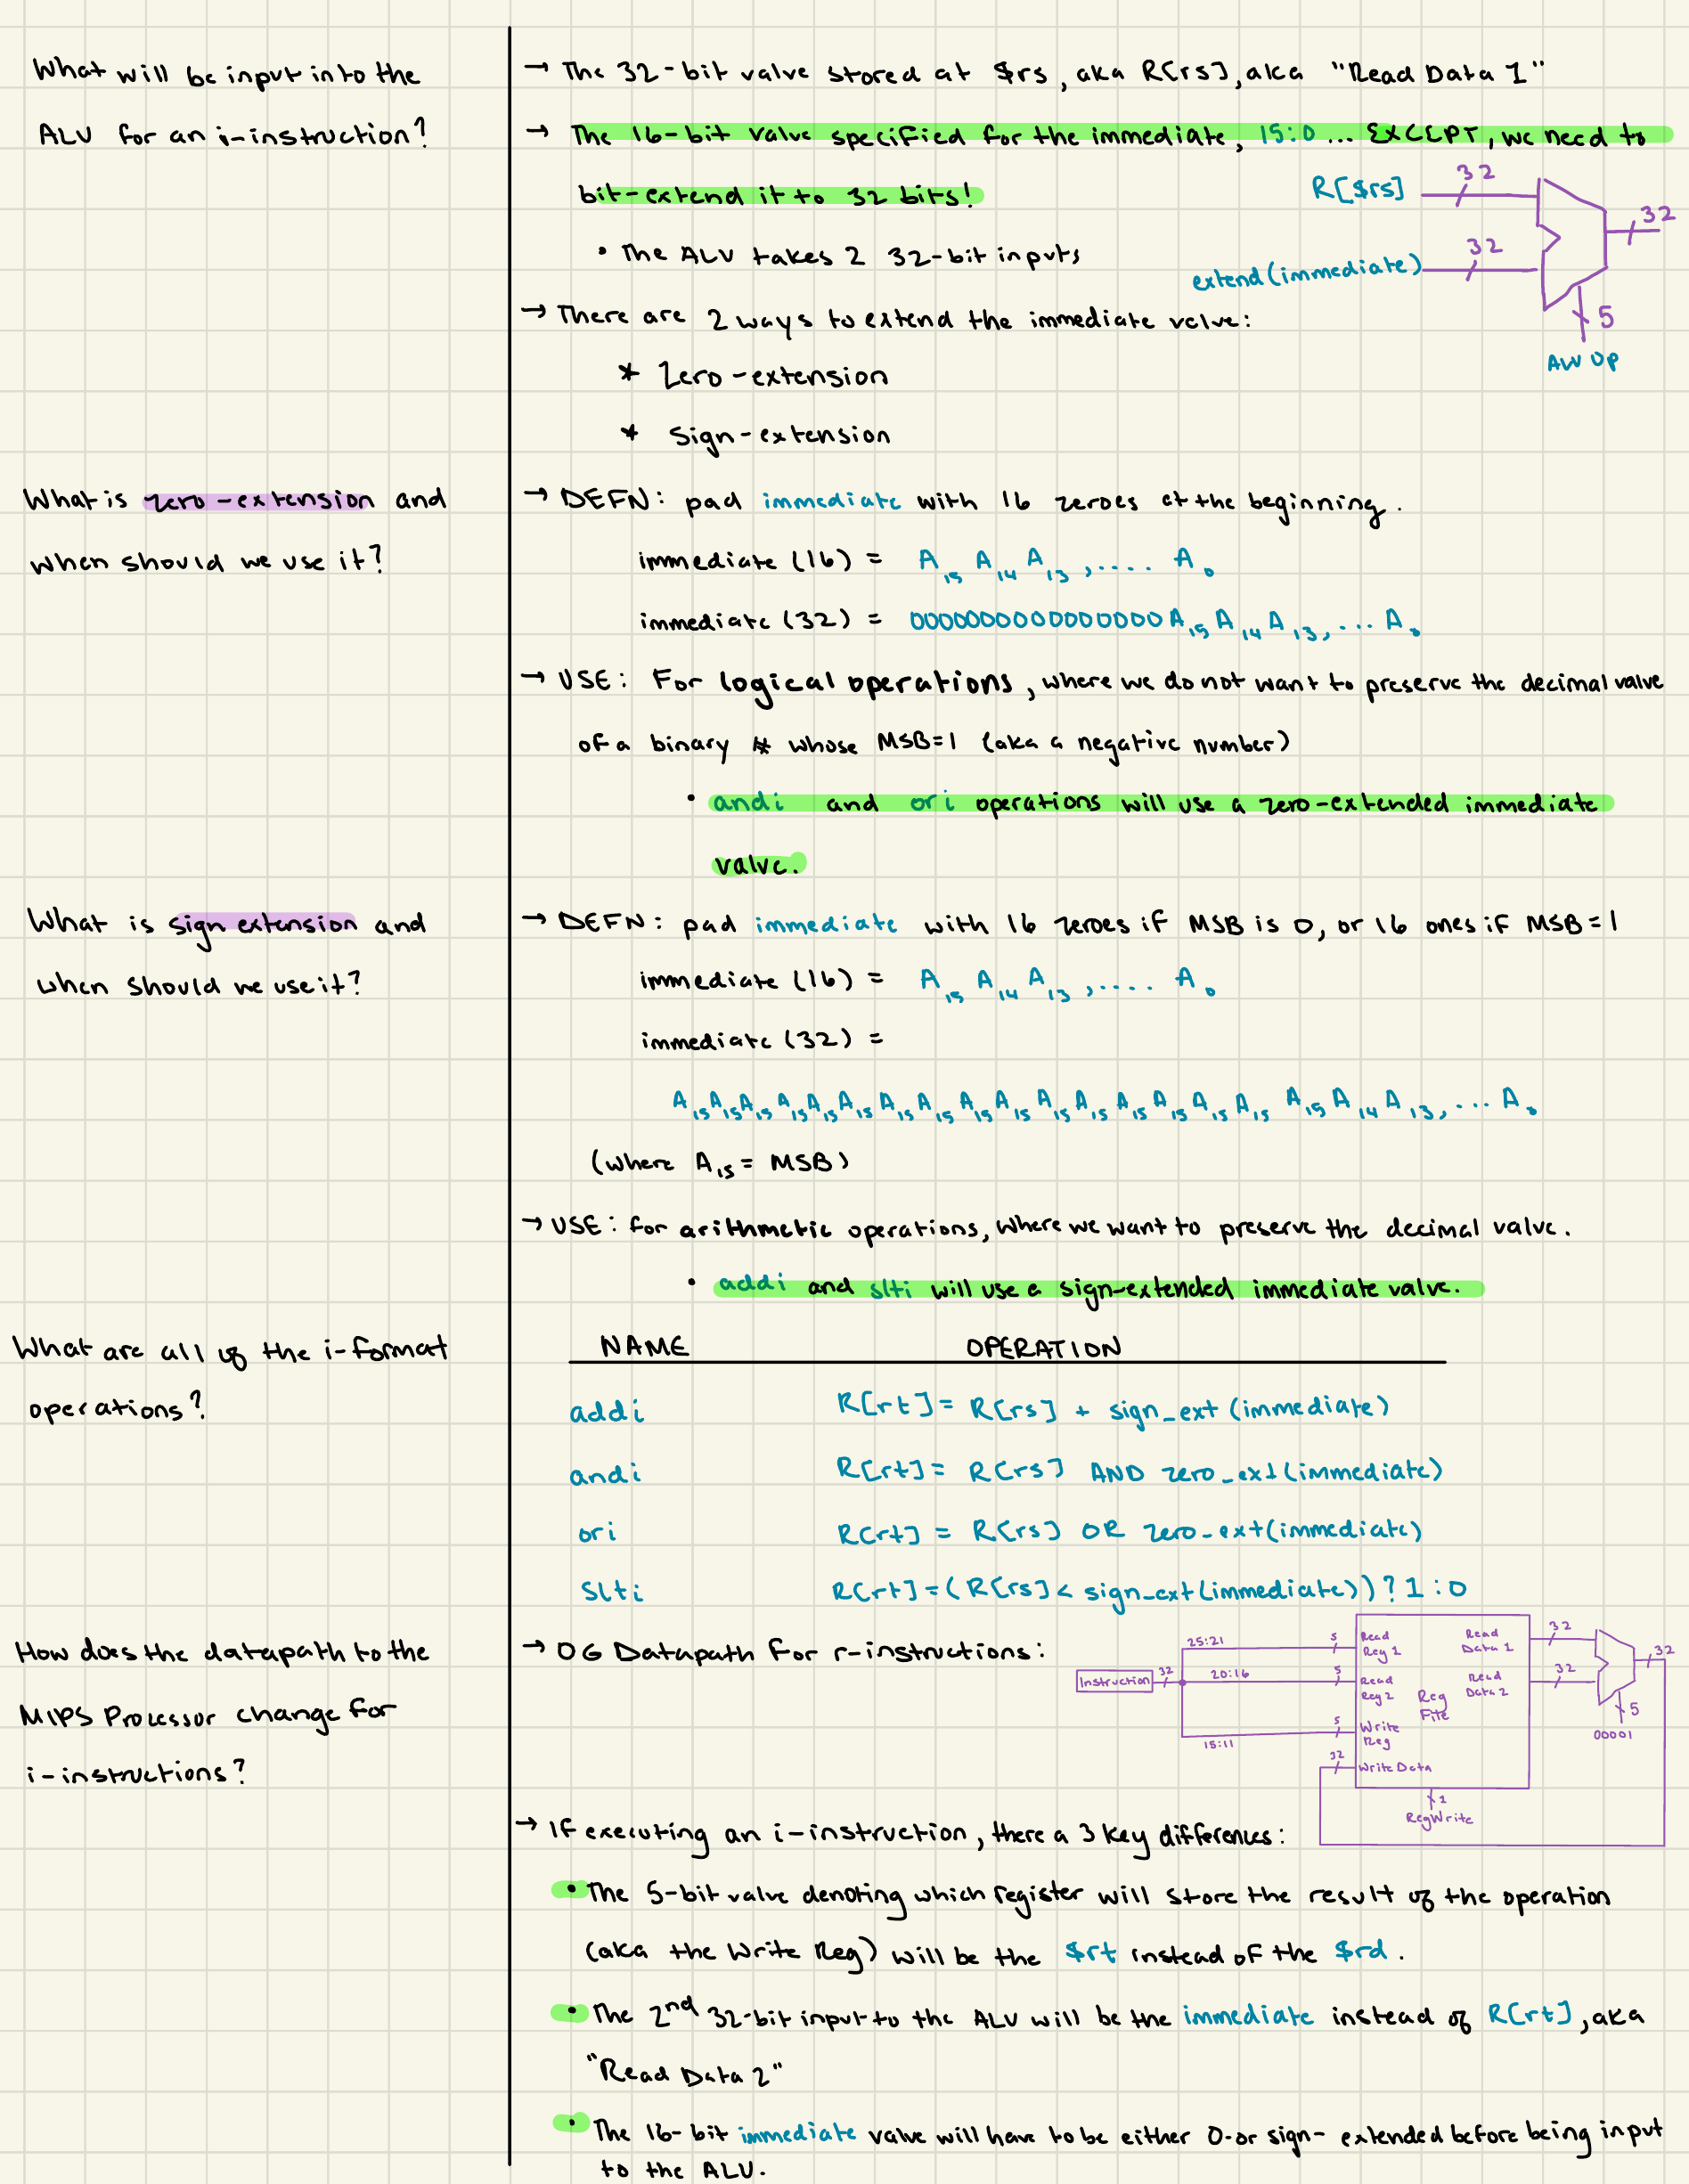 What will be input into the
ALU for an i-instruction?
→ The 32-bit value stored at $rs, aka R[rs], aka "Read Data 1"
→ The 16-bit value specified for the immediate, 15:0 ... EXCEPT, we need to
bit-extend it to 32 bits!
• The ALU takes 2 32-bit inputs
R[$rs]
32
32
extend(immediate)
32
5
ALU Op
→ There are 2 ways to extend the immediate value:
* Zero-extension
* Sign-extension
What is zero-extension and
when should we use it?
→ DEFN: pad immediate with 16 zeroes at the beginning.
immediate (16) = A15 A14 A13, .... A0
immediate (32) = 0000000000000000A15 A14 A13, ... A0
→ USE: For logical operations, where we do not want to preserve the decimal value
of a binary # whose MSB=1 (aka a negative number)
• andi and ori operations will use a zero-extended immediate
value.
What is sign extension and
when should we use it?
→ DEFN: pad immediate with 16 zeroes if MSB is 0, or 16 ones if MSB=1
immediate (16) = A15 A14 A13, .... A0
immediate (32) =
A15 A15 A15 A15 A15 A15 A15 A15 A15 A15 A15 A15 A15 A15 A15 A15 A15 A14 A13, ... A0
(where A15 = MSB)
→ USE: for arithmetic operations, where we want to preserve the decimal value.
• addi and slti will use a sign-extended immediate value.
What are all of the i-format
operations?
NAME OPERATION
addi R[rt] = R[rs] + sign_ext (immediate)
andi R[rt] = R[rs] AND zero_ext(immediate)
ori R[rt] = R[rs] OR zero_ext(immediate)
slti R[rt] = (R[rs] < sign_ext(immediate)) ? 1 : 0
How does the datapath to the
MIPS Processor change for
i-instructions?
→ OG Datapath for r-instructions:
Instruction
32
25:21
5
20:16
5
15:11
5
32
Read
Reg 1
Read
Reg 2
Write
Reg
Write Data
Reg
File
Read
Data 1
Read
Data 2
1
RegWrite
32
32
32
5
00001
→ If executing an i-instruction, there a 3 key differences:
• The 5-bit value denoting which register will store the result of the operation
(aka the Write Reg) will be the $rt instead of the $rd.
• The 2nd 32-bit input to the ALU will be the immediate instead of R[rt], aka
"Read Data 2"
• The 16-bit immediate value will have to be either 0-or sign-extended before being input
to the ALU.